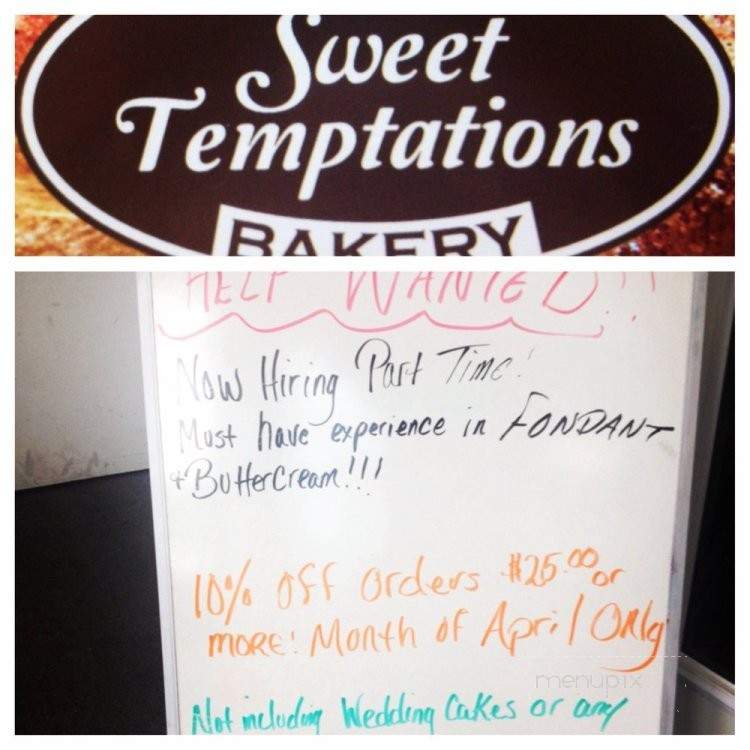 Sweet
Temptations
BAKERY
HELP WANTED!!
Now Hiring Part Time!
Must have experience in FONDANT
+ ButterCream!!!
10% OFF Orders $25.00 or
more! Month of April Only
Not including Wedding Cakes or any
menupix